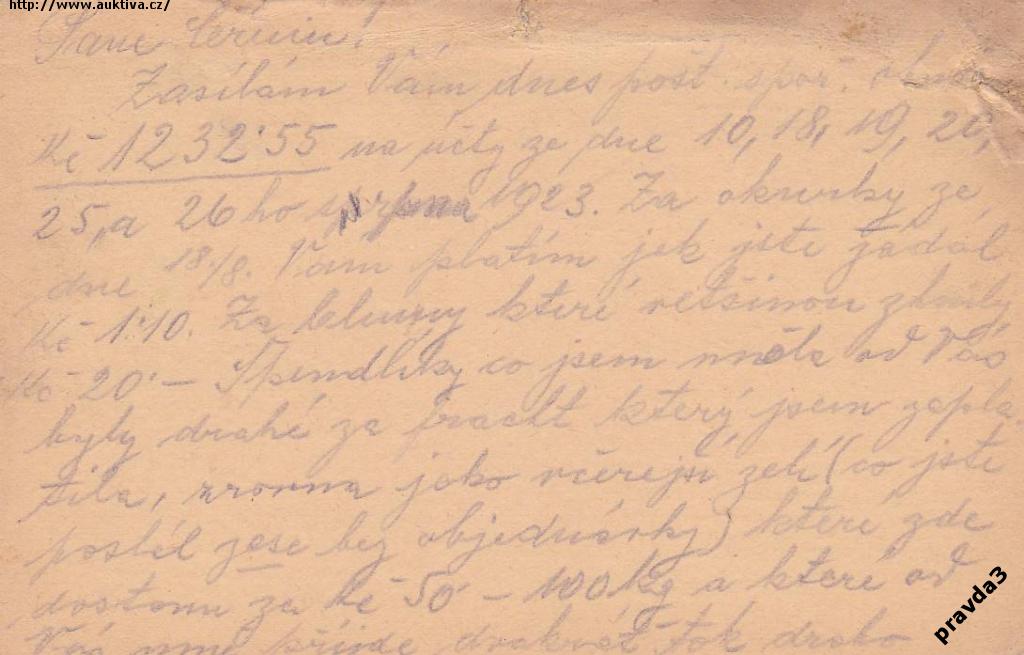 http://www.auktiva.cz/
Pane
Zasílám Vám dnes pošt. spoř.
Kč 1232·55 na účty ze dne 10, 18, 19, 20,
25, a 26 ho srpna 1923. Za okurky ze
dne 18./8. Vám platím jak jste žádal
Kč 1·10. Za které většinou zhnily
Kč 20·— Špendlíky co jsem měla od Vás
byly drahé za fracht který jsem zapla
tila, zrovna jako včerejší zelí (co jste
poslal zase bez objednávky) které zde
dostanu za Kč 50 – 100 kg a které od
Vás mně přijde dvakrát tak draho
pravda3